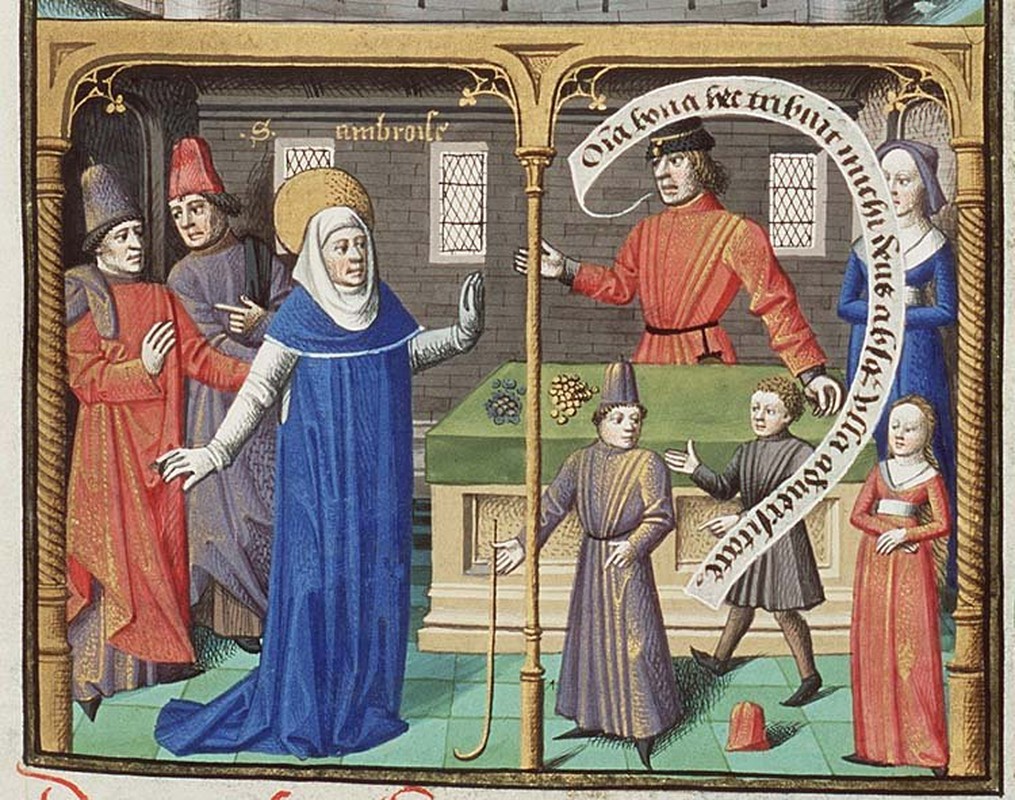 .S. ambroise
Oĩa bona hec tribuit michi deus absq; vlla aduersitate.